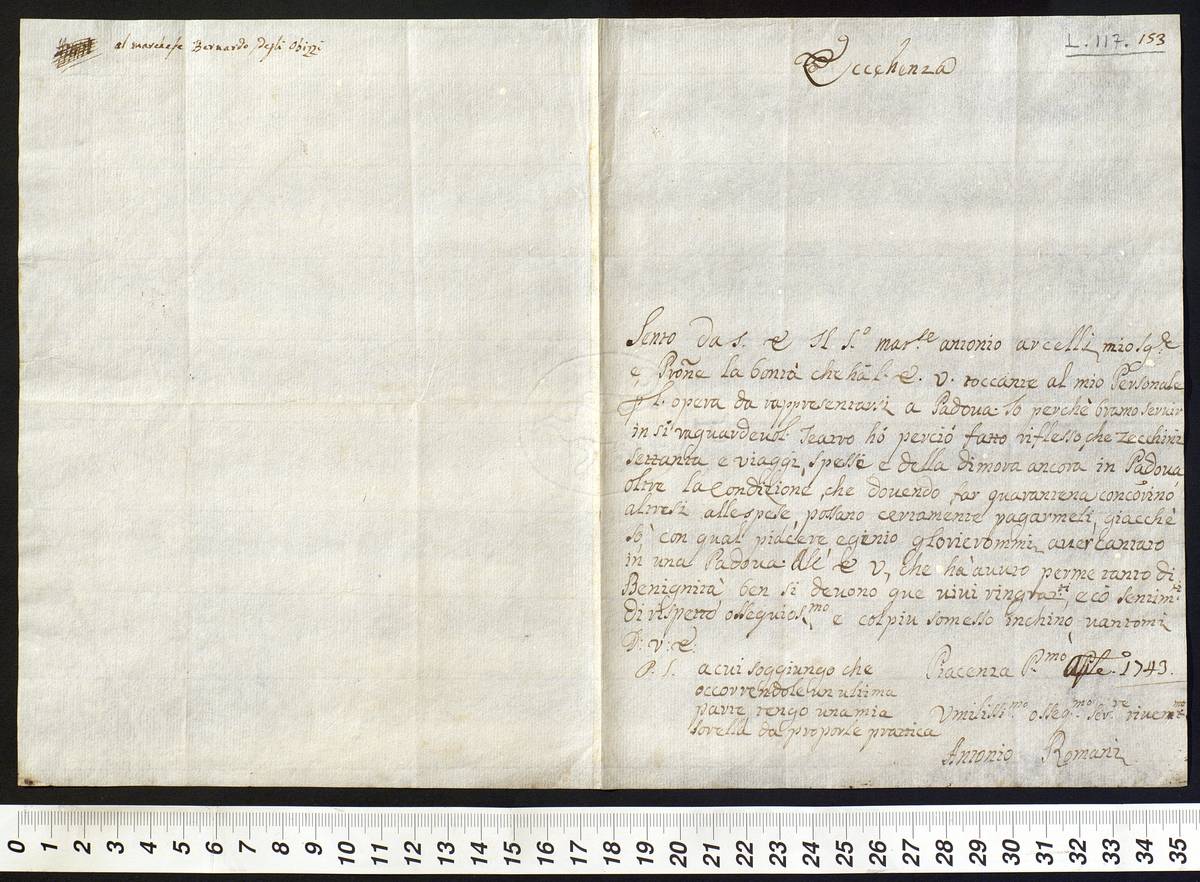 al marchese Bernardo degli Obizzi
L. 117. 153
Eccelenza
Sento da S. E Il S.º mar.se antonio arcelli mio Sig.re
e Proñe la bontà che hà l. E. V. toccante al mio Personale
l. opera da rappresentarsi a Padova. Io perchè bramo servir
in si raguardevol. Teatro hò perciò fatto riflesso, che zecchini
settanta e viaggi, spesse e della dimora ancora in Padova
oltre la Condizione, che dovendo far quarantena
altresi alle spese, possano certamente pagarmeli, giacchè
Sò con qual piacere e genio aver cantato
in una Padova. Al' E V, che hà avuto per me tanto di
Benignità ben si devono que vivi ringra.ti, e cō sentim.ti
di rispetto ossequios.mo e col piu somesso inchino vantomi
D: V: E:
P. S. a cui soggiungo che
occorrendole un ultima
parte tengo una mia
sorella da proporle prattica
Piacenza P.mo 1743.
Umilissi.mo osseq.mo Ser.re river.mo
Antonio Romani
0 1 2 3 4 5 6 7 8 9 10 11 12 13 14 15 16 17 18 19 20 21 22 23 24 25 26 27 28 29 30 31 32 33 34 35